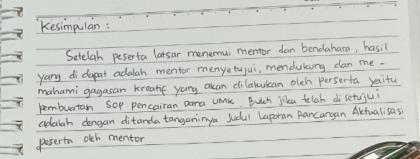 Kesimpulan :
Setelah peserta latsar menemui mentor dan bendahara, hasil
yang di dapat adalah mentor menyetujui, mendukung dan me-
mahami gagasan kreatif yang akan dilakukan oleh perserta yaitu
pembuatan SOP pencairan dana UMK. Bukti jika telah di setujui
adalah dengan ditanda tanganinya Judul Laporan Rancangan Aktualisasi
peserta oleh mentor